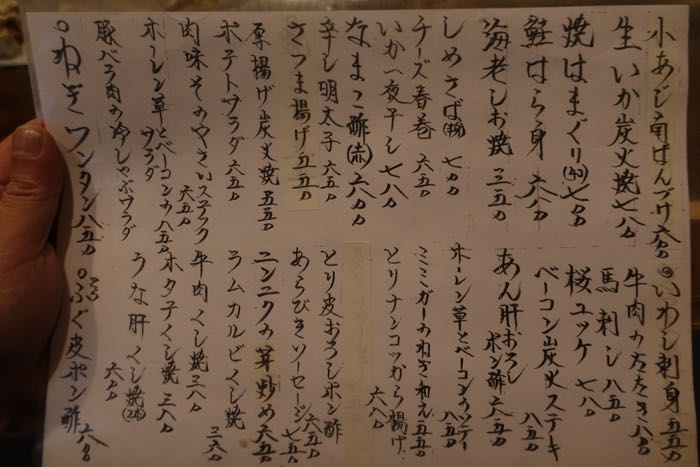 小あじ南ばんづけ 六〇〇
生いか炭火焼 七八〇
焼はまぐり(4コ) 七〇〇
鮭はら身 六八〇
海老しお焼 三五〇
しめさば 七〇〇
チーズ春巻 六五〇
いか一夜干し 七八〇
なまこ酢(赤) 六八〇
辛し明太子 六五〇
さつま揚げ 五五〇
厚揚げ炭火焼 五五〇
ポテトサラダ 六五〇
肉味そのやさいスティック 六五〇
ホーレン草とベーコンのサラダ 八五〇
豚バラ肉の冷しゃぶサラダ
ねぎワンタン 八五〇
いわし刺身 五五〇
牛肉のたたき 八八〇
馬刺し 八五〇
桜ユッケ 七八〇
ベーコン炭火ステーキ 八五〇
あん肝おろしポン酢 六五〇
ホーレン草とベーコンのソテー 八五〇
ミミガーのねぎ和え 五五〇
とりナンコツから揚げ 六八〇
とり皮おろしポン酢 六五〇
あらびきソーセージ 七五〇
ニンニクの芽炒め 六五〇
ラムカルビくし焼 三六〇
牛肉くし焼 三八〇
ホタテくし焼 三八〇
うな肝くし焼(2本) 六〇〇
ふぐ皮ポン酢 六八〇